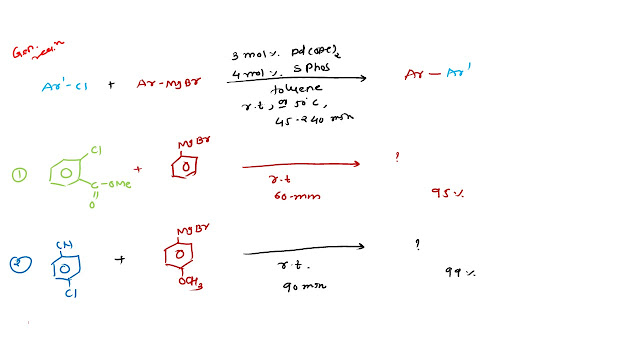 Gen. rxn
3 mol % Pd(OAc)2
4 mol % SPhos
Ar'-Cl + Ar-MgBr Ar-Ar'
toluene
r.t, or 50°C,
45-240 min
MgBr
Cl
① + ?
C-OMe
O
r.t
60-min
95%
MgBr
CN
② + ?
OCH3
Cl
r.t.
90 min
99%